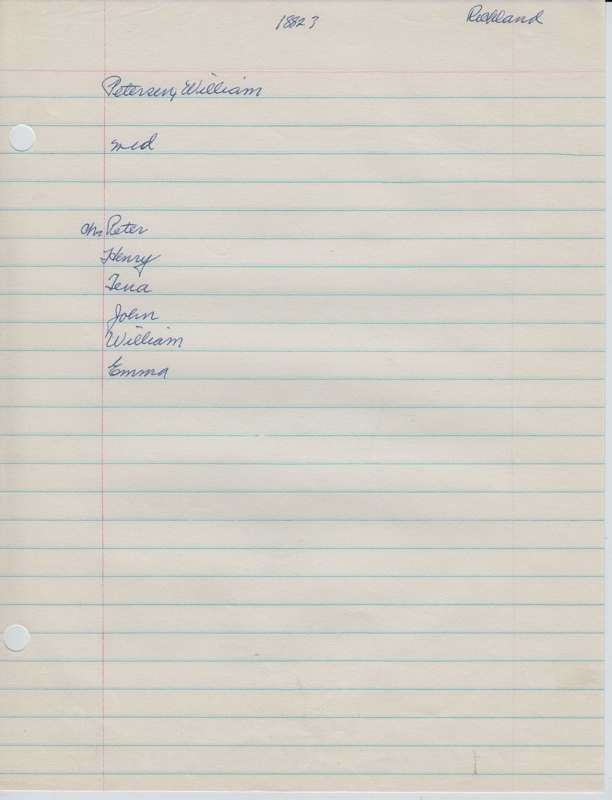 18823 Richland
Petersen, William
md
ch. Peter
Henry
Tena
John
William
Emma